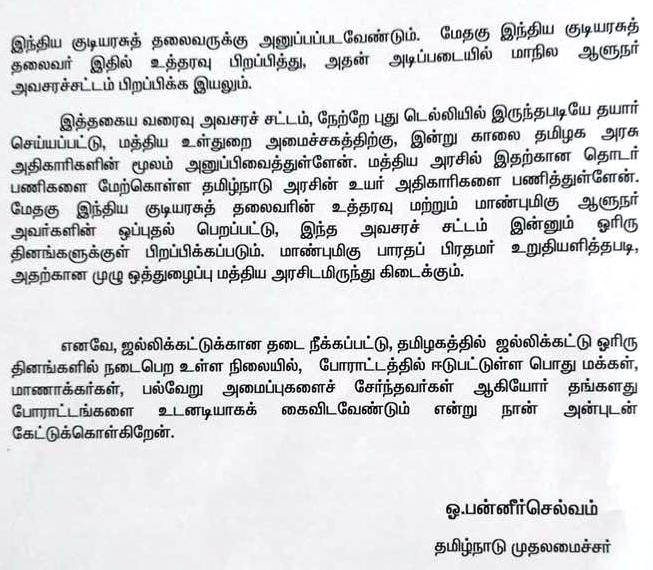 இந்திய குடியரசுத் தலைவருக்கு அனுப்பப்படவேண்டும். மேதகு இந்திய குடியரசுத்
தலைவர் இதில் உத்தரவு பிறப்பித்து, அதன் அடிப்படையில் மாநில ஆளுநர்
அவசரச்சட்டம் பிறப்பிக்க இயலும்.
இத்தகைய வரைவு அவசரச் சட்டம், நேற்றே புது டெல்லியில் இருந்தபடியே தயார்
செய்யப்பட்டு, மத்திய உள்துறை அமைச்சகத்திற்கு, இன்று காலை தமிழக அரசு
அதிகாரிகளின் மூலம் அனுப்பிவைத்துள்ளேன். மத்திய அரசில் இதற்கான தொடர்
பணிகளை மேற்கொள்ள தமிழ்நாடு அரசின் உயர் அதிகாரிகளை பணித்துள்ளேன்.
மேதகு இந்திய குடியரசுத் தலைவரின் உத்தரவு மற்றும் மாண்புமிகு ஆளுநர்
அவர்களின் ஒப்புதல் பெறப்பட்டு, இந்த அவசரச் சட்டம் இன்னும் ஓரிரு
தினங்களுக்குள் பிறப்பிக்கப்படும். மாண்புமிகு பாரதப் பிரதமர் உறுதியளித்தபடி,
அதற்கான முழு ஒத்துழைப்பு மத்திய அரசிடமிருந்து கிடைக்கும்.
எனவே, ஜல்லிக்கட்டுக்கான தடை நீக்கப்பட்டு, தமிழகத்தில் ஜல்லிக்கட்டு ஓரிரு
தினங்களில் நடைபெற உள்ள நிலையில், போராட்டத்தில் ஈடுபட்டுள்ள பொது மக்கள்,
மாணாக்கர்கள், பல்வேறு அமைப்புகளைச் சேர்ந்தவர்கள் ஆகியோர் தங்களது
போராட்டங்களை உடனடியாகக் கைவிடவேண்டும் என்று நான் அன்புடன்
கேட்டுக்கொள்கிறேன்.
ஓ.பன்னீர்செல்வம்
தமிழ்நாடு முதலமைச்சர்